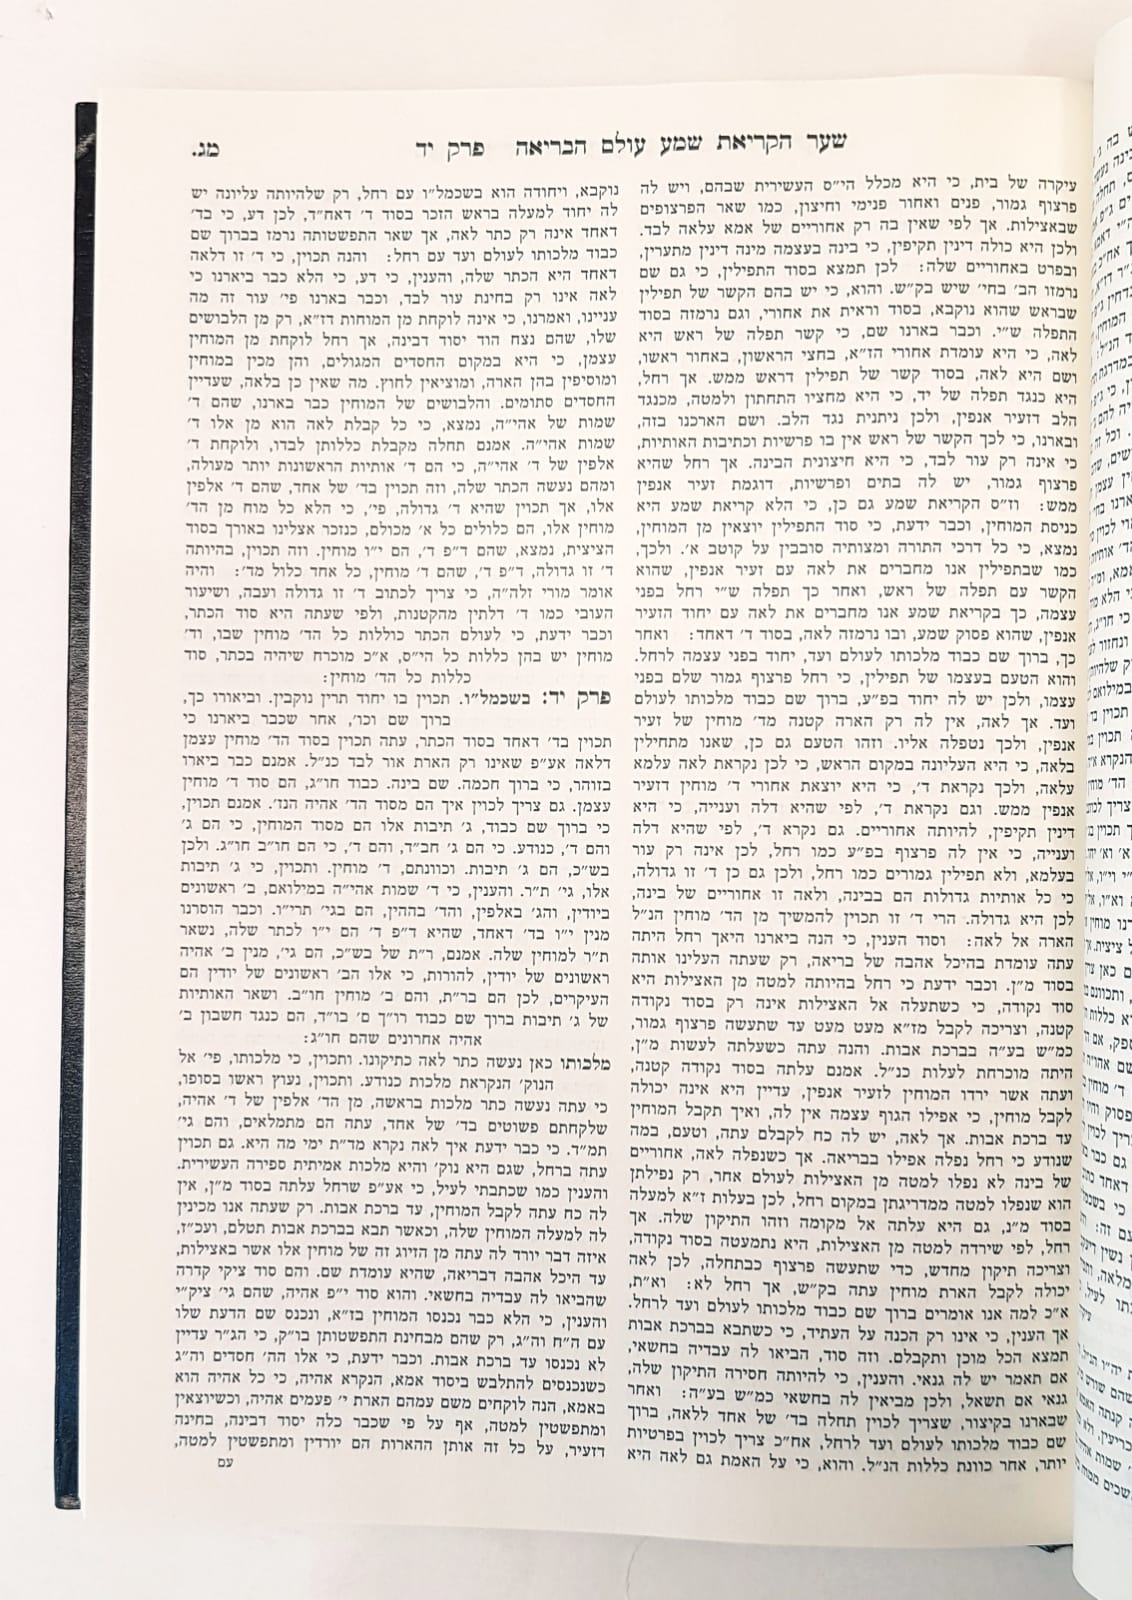 שער הקריאת שמע עולם הבריאה פרק יד
מג.
עיקרה של בית, כי היא מכלל הי״ס העשירית שבהם, ויש לה
פרצוף גמור, פנים ואחור פנימי וחיצון, כמו שאר הפרצופים
שבאצילות. אך לפי שאין בה רק אחוריים של אמא עלאה לבד.
ולכן היא כולה דינין תקיפין, כי בינה בעצמה מינה דינין מתערין,
ובפרט באחוריים שלה: לכן תמצא בסוד התפילין, כי גם שם
נרמזו הב׳ בחי׳ שיש בק״ש. והוא, כי יש בהם הקשר של תפילין
שבראש שהוא נוקבא, בסוד וראית את אחורי, וגם נרמזה בסוד
התפלה ש״י. וכבר בארנו שם, כי קשר תפלה של ראש היא
לאה, כי היא עומדת אחורי הז״א, בחצי הראשון, באחור ראשו,
ושם היא לאה, בסוד קשר של תפילין דראש ממש. אך רחל,
היא כנגד תפלה של יד, כי היא מחציו התחתון ולמטה, מכנגד
הלב דזעיר אנפין, ולכן ניתנית נגד הלב. ושם הארכנו בזה,
ובארנו, כי לכך הקשר של ראש אין בו פרשיות וכתיבות האותיות,
כי אינה רק עור לבד, כי היא חיצונית הבינה. אך רחל שהיא
פרצוף גמור, יש לה בתים ופרשיות, דוגמת זעיר אנפין
ממש: וז״ס הקריאת שמע גם כן, כי הלא קריאת שמע היא
כניסת המוחין, וכבר ידעת, כי סוד התפילין יוצאין מן המוחין,
נמצא, כי כל דרכי התורה ומצותיה סובבין על קוטב א׳. ולכך,
כמו שבתפילין אנו מחברים את לאה עם זעיר אנפין, שהוא
הקשר עם תפלה של ראש, ואחר כך תפלה ש״י רחל בפני
עצמה, כך בקריאת שמע אנו מחברים את לאה עם יחוד הזעיר
אנפין, שהוא פסוק שמע, ובו נרמזה לאה, בסוד ד׳ דאחד: ואחר
כך, ברוך שם כבוד מלכותו לעולם ועד, יחוד בפני עצמה לרחל.
והוא הטעם בעצמו של תפילין, כי רחל פרצוף גמור שלם בפני
עצמו, ולכן יש לה יחוד בפ״ע, ברוך שם כבוד מלכותו לעולם
ועד. אך לאה, אין לה רק הארה קטנה מד׳ מוחין של זעיר
אנפין, ולכך נטפלה אליו. וזהו הטעם גם כן, שאנו מתחילין
בלאה, כי היא העליונה במקום הראש, כי לכן נקראת לאה עלמא
עלאה, ולכך נקראת ד׳, כי היא יוצאת אחורי ד׳ מוחין דזעיר
אנפין ממש. וגם נקראת ד׳, לפי שהיא דלה וענייה, כי היא
דינין תקיפין, להיותה אחוריים. גם נקרא ד׳, לפי שהיא דלה
וענייה, כי אין לה פרצוף בפ״ע כמו רחל, לכן אינה רק עור
בעלמא, ולא תפילין גמורים כמו רחל, ולכן גם כן ד׳ זו גדולה,
כי כל אותיות גדולות הם בבינה, ולאה זו אחוריים של בינה,
לכן היא גדולה. הרי ד׳ זו תכוין להמשיך מן הד׳ מוחין הנ״ל
הארה אל לאה: וסוד הענין, כי הנה ביארנו היאך רחל היתה
עתה עומדת בהיכל אהבה של בריאה, רק שעתה העלינו אותה
בסוד מ״ן. וכבר ידעת כי רחל בהיותה למטה מן האצילות היא
סוד נקודה, כי כשתעלה אל האצילות אינה רק בסוד נקודה
קטנה, וצריכה לקבל מז״א מעט מעט עד שתעשה פרצוף גמור,
כמ״ש בע״ה בברכת אבות. והנה עתה כשעלתה לעשות מ״ן,
היתה מוכרחת לעלות כנ״ל. אמנם עלתה בסוד נקודה קטנה,
ועתה אשר ירדו המוחין לזעיר אנפין, עדיין היא אינה יכולה
לקבל מוחין, כי אפילו הגוף עצמה אין לה, ואיך תקבל המוחין
עד ברכת אבות. אך לאה, יש לה כח לקבלם עתה, וטעם, במה
שנודע כי רחל נפלה אפילו בבריאה. אך כשנפלה לאה, אחוריים
של בינה לא נפלו למטה מן האצילות לעולם אחר, רק נפילתן
הוא שנפלו למטה ממדריגתן במקום רחל, לכן בעלות ז״א למעלה
בסוד מ״נ, גם היא עלתה אל מקומה וזהו התיקון שלה. אך
רחל, לפי שירדה למטה מן האצילות, היא נתמעטה בסוד נקודה,
וצריכה תיקון מחדש, כדי שתעשה פרצוף כבתחלה, לכן לאה
יכולה לקבל הארת מוחין עתה בק״ש, אך רחל לא: וא״ת,
א״כ למה אנו אומרים ברוך שם כבוד מלכותו לעולם ועד לרחל.
אך הענין, כי אינו רק הכנה על העתיד, כי כשתבא בברכת אבות
תמצא הכל מוכן ותקבלם. וזה סוד, הביאו לה עבדיה בחשאי,
אם תאמר יש לה גנאי. והענין, כי להיותה חסירה התיקון שלה,
גנאי אם תשאל, ולכן מביאין לה בחשאי כמ״ש בע״ה: ואחר
שבארנו בקיצור, שצריך לכוין תחלה בד׳ של אחד ללאה, ברוך
שם כבוד מלכותו לעולם ועד לרחל, אח״כ צריך לכוין בפרטיות
יותר, אחר כוונת כללות הנ״ל. והוא, כי על האמת גם לאה היא
נוקבא, ויחודה הוא בשכמל״ו עם רחל, רק שלהיותה עליונה יש
לה יחוד למעלה בראש הזכר בסוד ד׳ דאח״ד, לכן דע, כי בד׳
דאחד אינה רק כתר לאה, אך שאר התפשטותה נרמז בברוך שם
כבוד מלכותו לעולם ועד עם רחל: והנה תכוין, כי ד׳ זו דלאה
דאחד היא הכתר שלה, והענין, כי דע, כי הלא כבר ביארנו כי
לאה אינו רק בחינת עור לבד, וכבר בארנו פי׳ עור זה מה
עניינו, ואמרנו, כי אינה לוקחת מן המוחות דז״א, רק מן הלבושים
שלו, שהם נצח הוד יסוד דבינה, אך רחל לוקחת מן המוחין
עצמן, כי היא במקום החסדים המגולים, והן מכין במוחין
ומוסיפין בהן הארה, ומוציאין לחוץ. מה שאין כן בלאה, שעדיין
החסדים סתומים. והלבושים של המוחין כבר בארנו, שהם ד׳
שמות של אהי״ה, נמצא, כי כל קבלת לאה הוא מן אלו ד׳
שמות אהי״ה. אמנם תחלה מקבלת כללותן לבדו, ולוקחת ד׳
אלפין של ד׳ אהי״ה, כי הם ד׳ אותיות הראשונות יותר מעולה,
ומהם נעשה הכתר שלה, וזה תכוין בד׳ של אחד, שהם ד׳ אלפין
אלו, אך תכוין שהיא ד׳ גדולה, פי׳, כי הלא כל מוח מן הד׳
מוחין אלו, הם כלולים כל א׳ מכולם, כנזכר אצלינו באורך בסוד
הציצית, נמצא, שהם ד״פ ד׳, הם י״ו מוחין. וזה תכוין, בהיותה
ד׳ זו גדולה, ד״פ ד׳, שהם ד׳ מוחין, כל אחד כלול מד׳: והיה
אומר מורי זלה״ה, כי צריך לכתוב ד׳ זו גדולה ועבה, ושיעור
העובי כמו ד׳ דלתין מהקטנות, ולפי שעתה היא סוד הכתר,
וכבר ידעת, כי לעולם הכתר כוללות כל הד׳ מוחין שבו, וד׳
מוחין יש בהן כללות כל הי״ס, א״כ מוכרח שיהיה בכתר, סוד
כללות כל הד׳ מוחין:
פרק יד: בשכמל״ו. תכוין בו יחוד תרין נוקבין. וביאורו כך,
ברוך שם וכו׳, אחר שכבר ביארנו כי
תכוין בד׳ דאחד בסוד הכתר, עתה תכוין בסוד הד׳ מוחין עצמן
דלאה אע״פ שאינו רק הארת אור לבד כנ״ל. אמנם כבר ביארו
בזוהר, כי ברוך חכמה. שם בינה. כבוד חו״ג, הם סוד ד׳ מוחין
עצמן. גם צריך לכוין איך הם מסוד הד׳ אהיה הנז׳. אמנם תכוין,
כי ברוך שם כבוד, ג׳ תיבות אלו הם מסוד המוחין, כי הם ג׳
והם ד׳, כנודע. כי הם ג׳ חב״ד, והם ד׳, כי הם חו״ב חו״ג. ולכן
בש״כ, הם ג׳ תיבות. וכוונתם, ד׳ מוחין. ותכוין, כי ג׳ תיבות
אלו, גי׳ ת״ר. והענין, כי ד׳ שמות אהי״ה במילואם, ב׳ ראשונים
ביודין, והג׳ באלפין, והד׳ בההין, הם בגי׳ תרי״ו. וכבר הוסרנו
מנין י״ו בד׳ דאחד, שהיא ד״פ ד׳ הם י״ו לכתר שלה, נשאר
ת״ר למוחין שלה. אמנם, ר״ת של בש״כ, הם גי׳, מנין ב׳ אהיה
ראשונים של יודין, להורות, כי אלו הב׳ ראשונים של יודין הם
העיקרים, לכן הם בר״ת, והם ב׳ מוחין חו״ב. ושאר האותיות
של ג׳ תיבות ברוך שם כבוד רו״ך ם׳ בו״ד, הם כנגד חשבון ב׳
אהיה אחרונים שהם חו״ג:
מלכותו כאן נעשה כתר לאה כתיקונו. ותכוין, כי מלכותו, פי׳ אל
הנוק׳ הנקראת מלכות כנודע. ותכוין, נעוץ ראשו בסופו,
כי עתה נעשה כתר מלכות בראשה, מן הד׳ אלפין של ד׳ אהיה,
שלקחתם פשוטים בד׳ של אחד, עתה הם מתמלאים, והם גי׳
תמ״ד. כי כבר ידעת איך לאה נקרא מד״ת ימי מה היא. גם תכוין
עתה ברחל, שגם היא נוק׳ והיא מלכות אמיתית ספירה העשירית.
והענין כמו שכתבתי לעיל, כי אע״פ שרחל עלתה בסוד מ״ן, אין
לה כח עתה לקבל המוחין, עד ברכת אבות. רק שעתה אנו מכינין
לה למעלה המוחין שלה, וכאשר תבא בברכת אבות תטלם, ועכ״ז,
איזה דבר יורד לה עתה מן הזיוג זה של מוחין אלו אשר באצילות,
עד היכל אהבה דבריאה, שהיא עומדת שם. והם סוד ציקי קדרה
שהביאו לה עבדיה בחשאי. והוא סוד י״פ אהיה, שהם גי׳ ציק״י
והענין, כי הלא כבר נכנסו המוחין בז״א, ונכנס שם הדעת שלו
עם ה״ח וה״ג, רק שהם מבחינת התפשטותן בו״ק, כי הג״ר עדיין
לא נכנסו עד ברכת אבות. וכבר ידעת, כי אלו הה׳ חסדים וה״ג
כשנכנסים להתלבש ביסוד אמא, הנקרא אהיה, כי כל אהיה הוא
באמא, הנה לוקחים משם עמהם הארת י׳ פעמים אהיה, וכשיוצאין
ומתפשטין למטה, אף על פי שכבר כלה יסוד דבינה, בחינה
דזעיר, על כל זה אותן ההארות הם יורדין ומתפשטין למטה,
עם